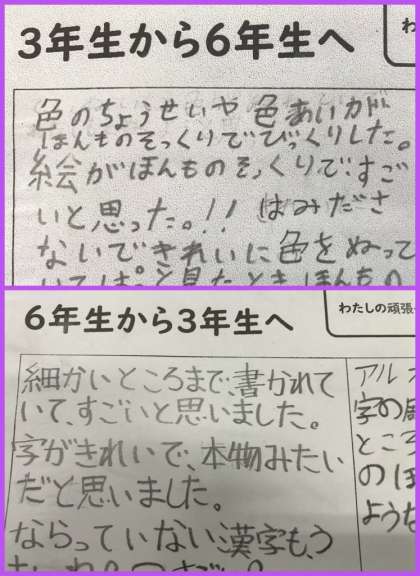 3年生から6年生へ
わ
色のちょうせいや色あいが
ほんものそっくりでびっくりした。
絵がほんものそっくりで、すご
いと思った。!! はみださ
ないできれいに色をぬって
6年生から3年生へ
わたしの頑張
細かいところまで、書かれて
いて、すごいと思いました。
字がきれいで、本物みたい
だと思いました。
ならっていない漢字も、う
アル
字の
ところ
のほ
ような